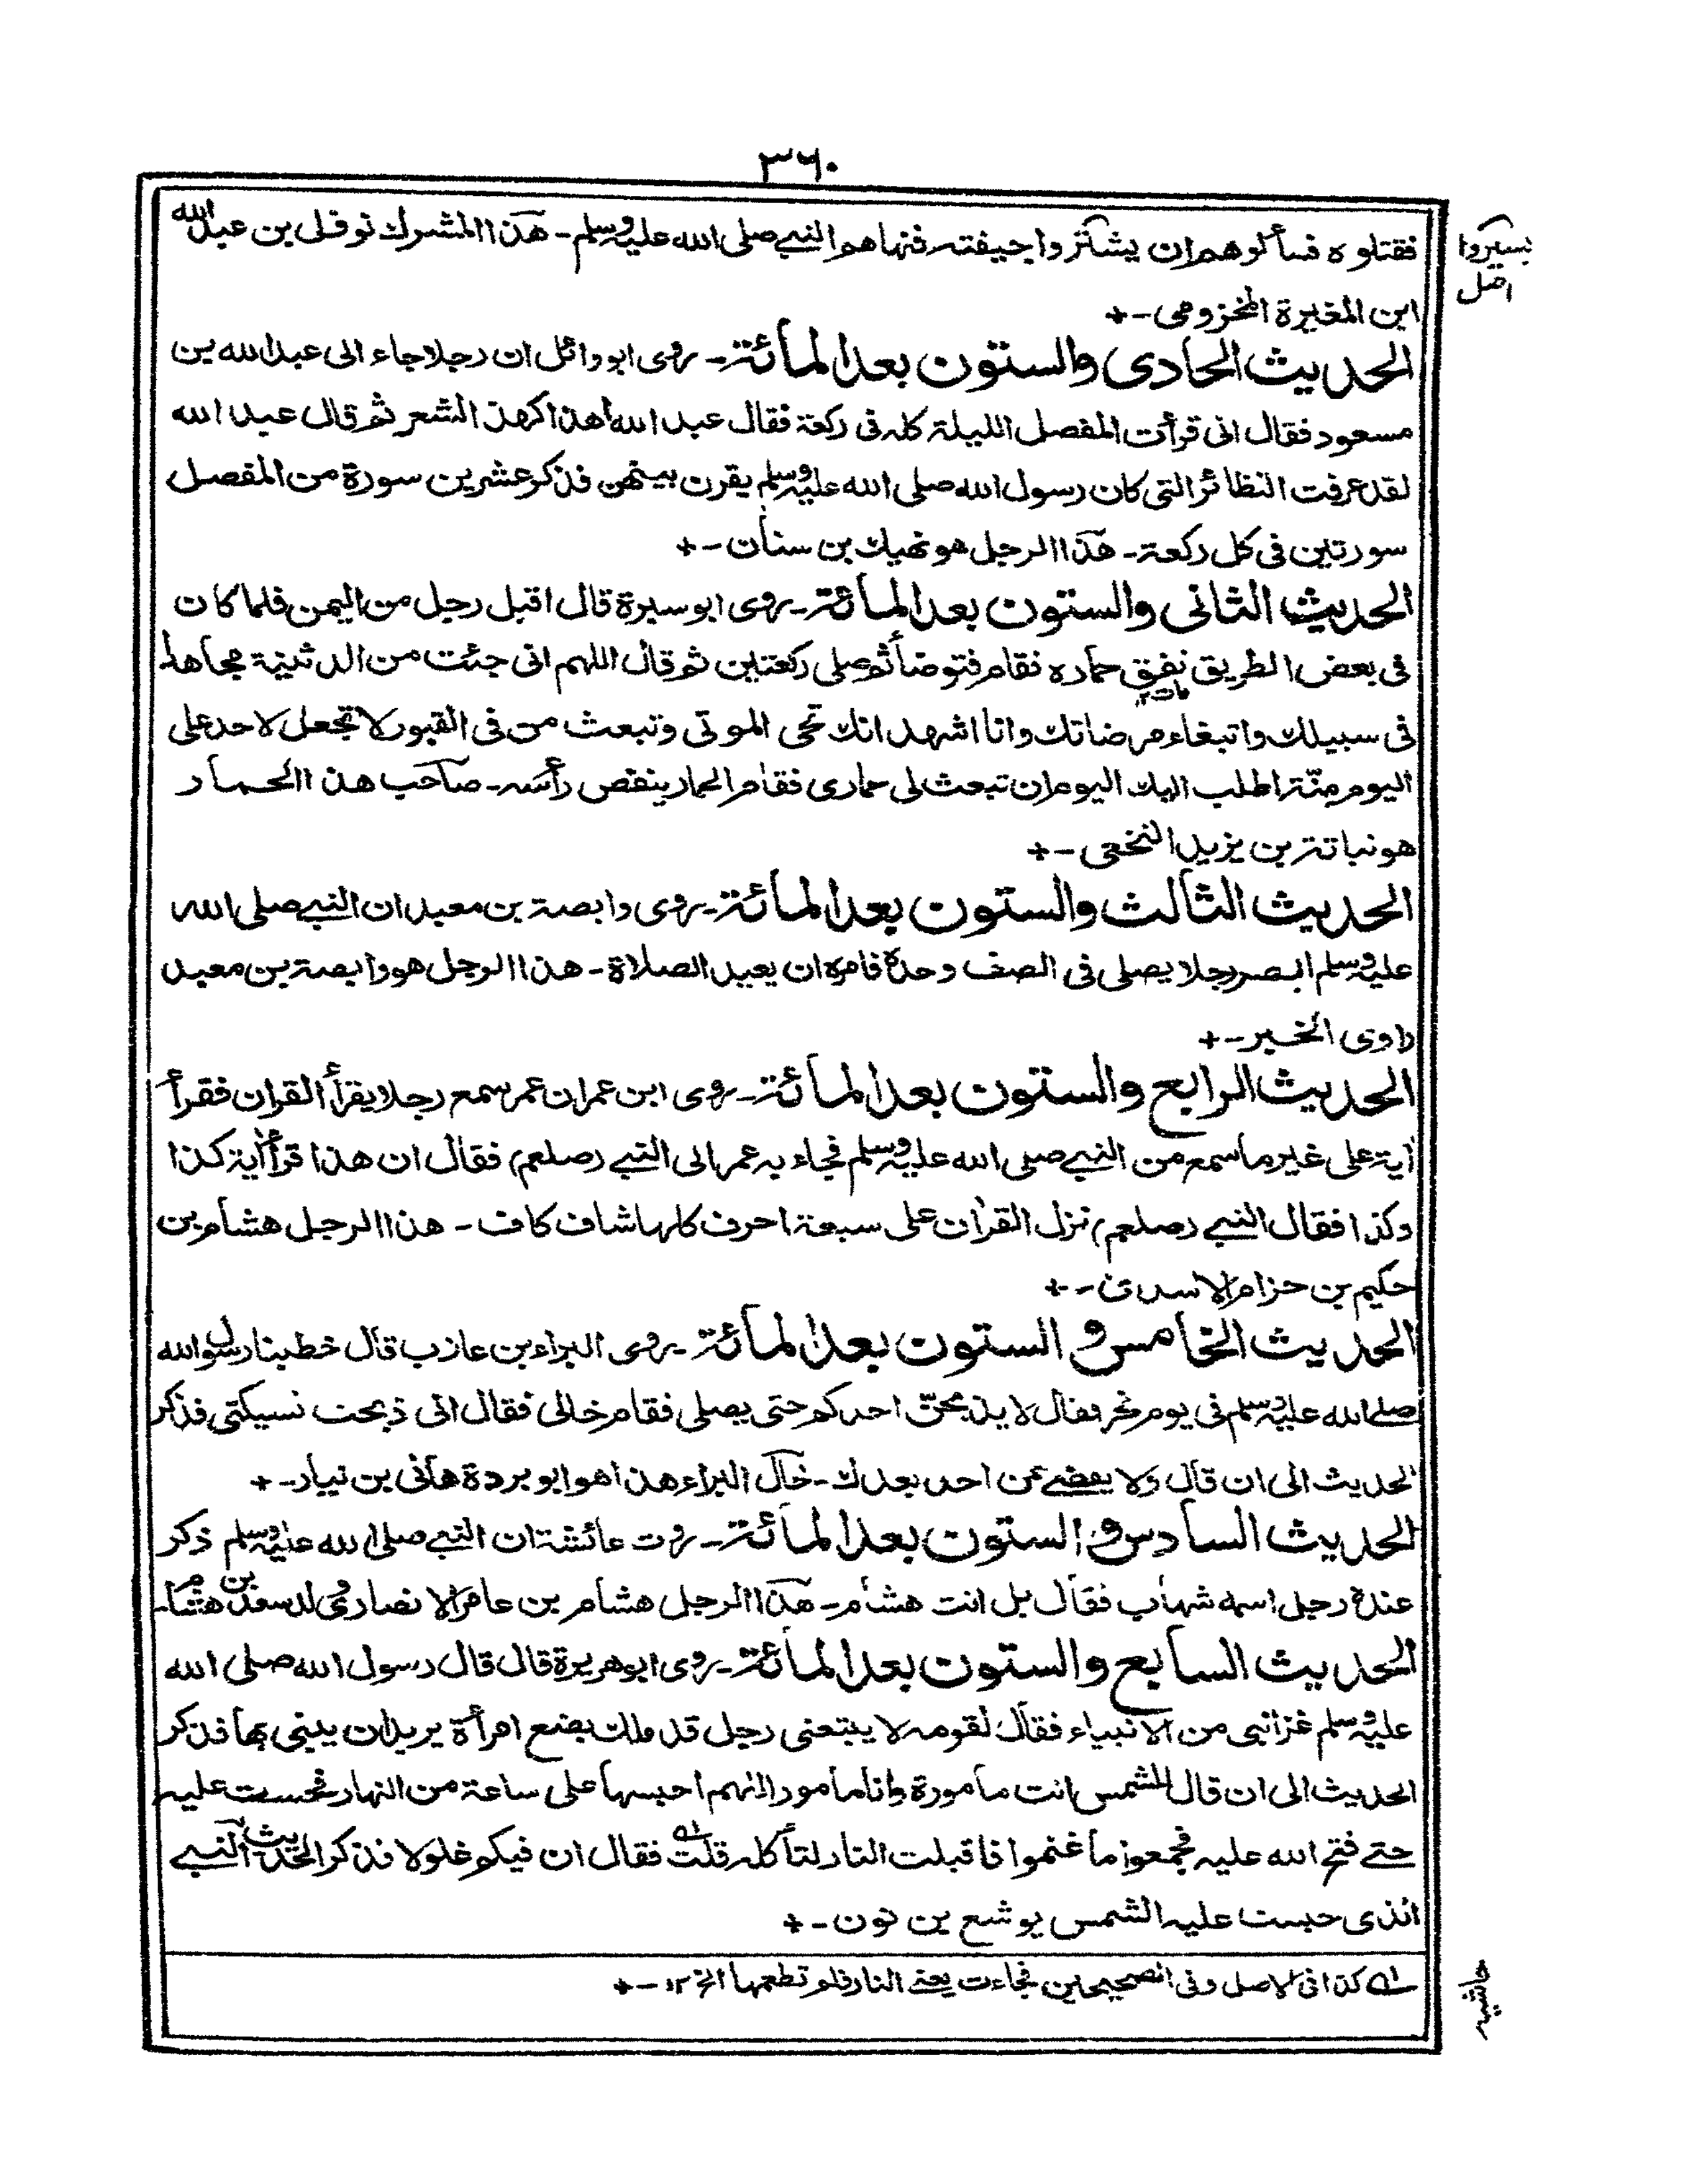 ٣٦٠
فقتلوه فسألوهم ان يشتروا جيفته فنهاهم النبي صلى الله عليه وسلم - هذا المشرك نوفل بن عبد الله
يسيروا
اصل
ابن المغيرة المخزومى -+
الحديث الحادى والستون بعد المأئة - روى ابو وائل ان رجلا جاء الى عبد الله بن
مسعود فقال انى قرأت المفصل الليلة كله فى ركعة فقال عبد الله أهذا كهذ الشعر ثم قال عبد الله
لقد عرفت النظائر التى كان رسول الله صلى الله عليه وسلم يقرن بينهن فذكر عشرين سورة من المفصل
سورتين فى كل ركعة - هذا الرجل هو نهيك بن سنان -+
الحديث الثانى والستون بعد المأئة - روى ابو سبرة قال اقبل رجل من اليمن فلما كان
فى بعض الطريق نفق حماره فقام فتوضأ ثم صلى ركعتين ثم قال اللهم انى جئت من الدثينة مجاهدا
فى سبيلك وابتغاء مرضاتك وانا اشهد انك تحى الموتى وتبعث من فى القبور لا تجعل لاحد على
اليوم منّة اطلب اليك اليوم ان تبعث لى حمارى فقام الحمار ينفض رأسه - صاحب هذا الحمار
هو نباتة بن يزيد النخعى -+
الحديث الثالث والستون بعد المأئة - روى وابصة بن معبد ان النبي صلى الله
عليه وسلم ابصر رجلا يصلى فى الصف وحده فامره ان يعيد الصلاة - هذا الرجل هو وابصة بن معبد
راوى الخبر -+
الحديث الرابع والستون بعد المأئة - روى ابن عمر ان عمر سمع رجلا يقرأ القران فقرأ
أية على غير ما سمع من النبي صلى الله عليه وسلم فجاء به عمر الى النبي (صلعم) فقال ان هذا قرأ أية كذا
وكذا فقال النبي (صلعم) نزل القران على سبعة احرف كلها شاف كاف - هذا الرجل هشام بن
حكيم بن حزام الاسدى -+
الحديث الخامس و الستون بعد المأئة - روى البراء بن عازب قال خطبنا رسول الله
صلے الله عليه وسلم فى يوم نحر فقال لا يذبحنّ احدكم حتى يصلى فقام خالى فقال انى ذبحت نسيكتى فذكر
الحديث الى ان قال ولا يقضے عن احد بعدك - خال البراء هذا هو ابو بردة هانى بن نيار -+
الحديث السادس و الستون بعد المأئة - روت عائشة ان النبي صلى الله عليه وسلم ذكر
عنده رجل اسمه شهاب فقال بل انت هشام - هذا الرجل هشام بن عامر الانصارى والد سعد بن هشام -
الحديث السابع والستون بعد المأئة - روى ابو هريرة قال قال رسول الله صلى الله
عليه وسلم غزا نبى من الانبياء فقال لقومه لا يتبعنى رجل قد ملك بضع امرأة يريد ان يبنى بها فذكر
الحديث الى ان قال للشمس انت مأمورة وانا مأمور اللهم احبسها على ساعة من النهار فحبست عليه
حتے فتح الله عليه فجمعوا ما غنموا فاقبلت النار لتأكله قلت فقال ان فيكم غلولا فذكر الحديث النبي
الذى حبست عليه الشمس يوشع بن نون -+
له كذا فى الاصل وفى الصحيحين فجاءت يعنے النار فلم تطعمها الخ ١٢ -+
حاشيه